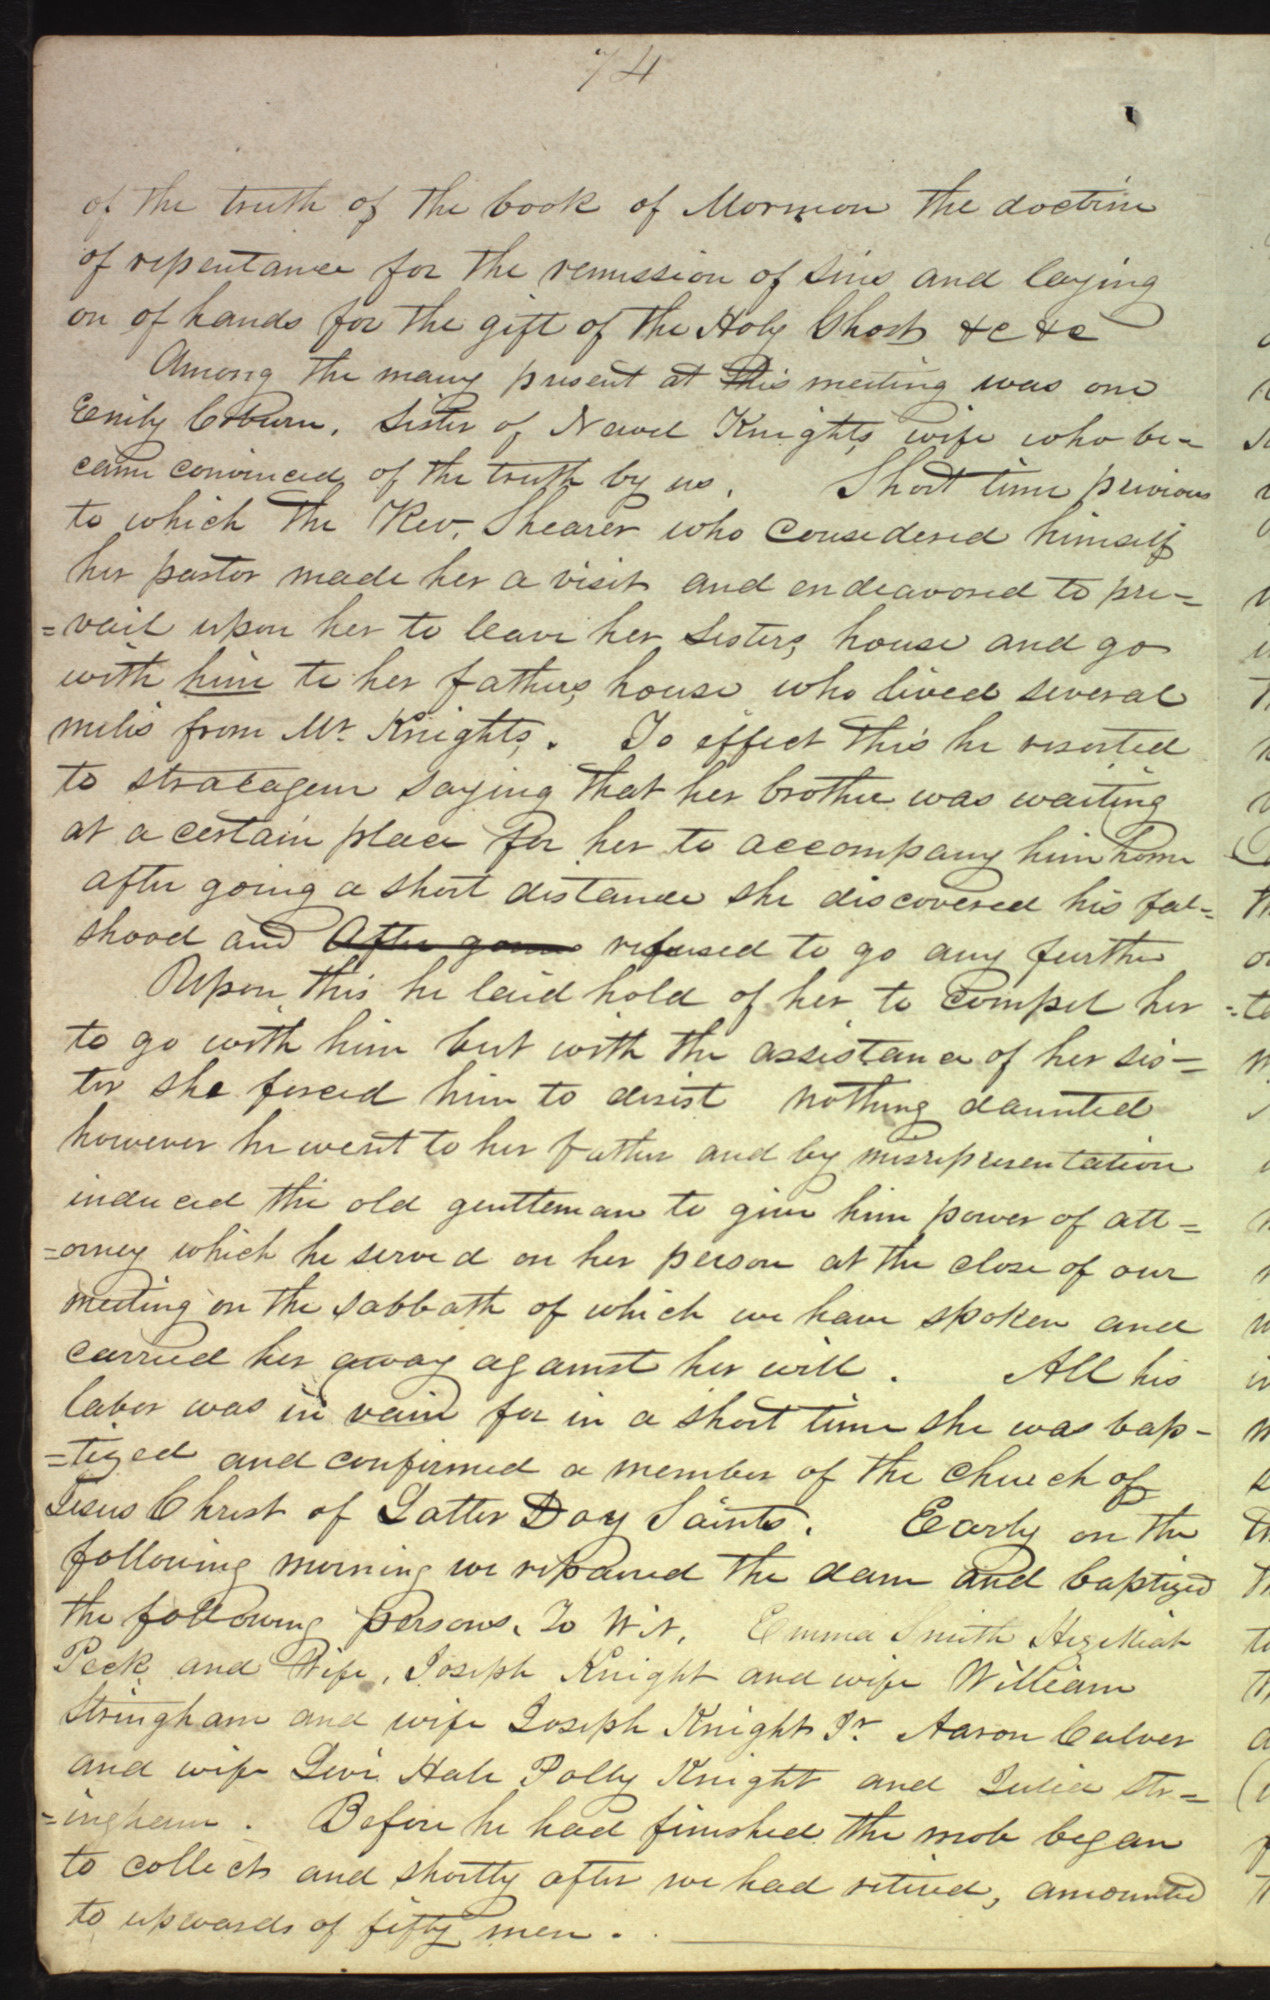 74
of the truth of the book of Mormon the doctrine
of repentance for the remission of sins and laying
on of hands for the gift of the Holy Ghost &c &c
Among the many present at this meeting was one
Emily Coburn, Sister of Newel Knights wife who be-
came convinced of the truth by us. Short time previous
to which the Rev. Shearer who considered himself
her pastor made her a visit and endeavored to pre-
=vail upon her to leave her sisters house and go
with him to her fathers house who lived several
miles from Mr. Knights. To effect this he resorted
to stratagem saying that her brother was waiting
at a certain place for her to accompany him home
after going a short distance she discovered his fal-
shood and After gone refused to go any further
Upon this he laid hold of her to compel her
to go with him but with the assistance of her sis-
ter she forced him to desist nothing daunted
however he went to her father and by misrepresentation
induced the old gentleman to give him power of att-
=orney which he served on her person at the close of our
meeting on the sabbath of which we have spoken and
carried her away against her will. All his
labor was in vain for in a short time she was bap-
=tized and confirmed a member of the church of
Jesus Christ of Latter Day Saints. Early on the
following morning we repaired the dam and baptized
the following persons. To Wit, Emma Smith Hezekiah
Peck and Wife, Joseph Knight and wife William
Stringham and wife Joseph Knight Jr. Aaron Culver
and wife Levi Hale Polly Knight and Julia Str-
=ingham. Before he had finished the mob began
to collect and shortly after we had retired, amounted
to upwards of fifty men.